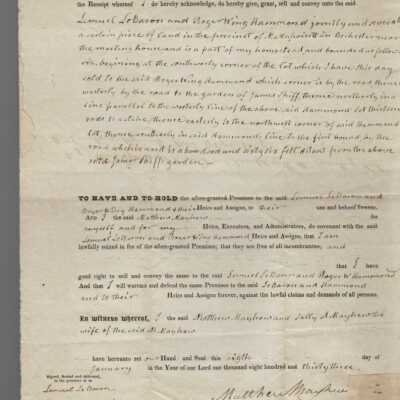 the Receipt whereof I do hereby acknowledge, do hereby give, grant, sell and convey unto the said
Lemuel LeBaron and Roger Wing Hammond jointly and
a certain piece of land in the precinct of Mattapoisett in Rochester near
the meeting house and is a part of my homestead and bounded as follow
viz. beginning at the southerly corner of the lot which I have this day
sold to the said Roger Wing Hammond which corner is by the road thence
westerly by the road to the garden of James thence northerly in a
line parallel to the westerly line of the above said Hammond lot thirteen
rods to a stake thence easterly to the northwest corner of said Hammond
lot, thence southerly in said Hammond line to the first bound by the
road which is and is a hundred and sixty six feet distant from the above
said garden
TO HAVE AND TO HOLD the afore-granted Premises to the said Lemuel LeBaron and
Roger W Hammond & their Heirs and Assigns, to their use and behoof forever.
And I the said Matthew Mayhew for
myself and for my Heirs, Executors, and Administrators, do covenant with the said
Lemuel LeBaron and Roger Wing Hammond Heirs and Assigns, that I am
lawfully seized in fee of the afore-granted Premises; that they are free of all incumbrances, and
that I have
good right to sell and convey the same to the said Lemuel LeBaron and Roger W Hammond
And that I will warrant and defend the same Premises to the said LeBaron and Hammond
and to their Heirs and Assigns forever, against the lawful claims and demands of all persons.
In witness whereof, I the said Matthew Mayhew and Sally A Mayhew the
wife of the said M. Mayhew
have hereunto set our Hand and Seal this eighth day of
January in the Year of our Lord one thousand eight hundred and thirty three
Signed, Sealed and delivered,
in the presence of us
Lemuel LeBaron
Matthew Mayhew